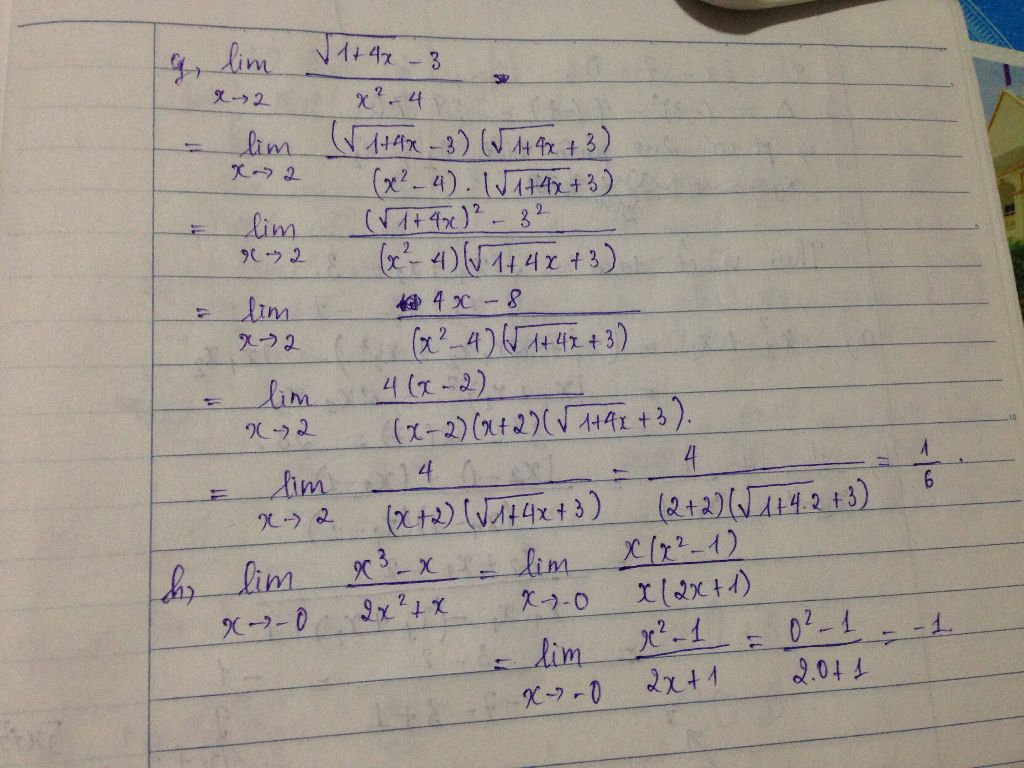 g, lim x→2 (√(1+4x) − 3)/(x² − 4) =
= lim x→2 ((√(1+4x) − 3)(√(1+4x) + 3))/((x² − 4).(√(1+4x) + 3))
= lim x→2 ((√(1+4x))² − 3²)/((x² − 4)(√(1+4x) + 3))
= lim x→2 (4x − 8)/((x² − 4)(√(1+4x) + 3))
= lim x→2 (4(x − 2))/((x − 2)(x+2)(√(1+4x) + 3)).
= lim x→2 4/((x+2)(√(1+4x) + 3)) = 4/((2+2)(√(1+4.2) + 3)) = 1/6.
h, lim x→−0 (x³ − x)/(2x² + x) = lim x→−0 (x(x² − 1))/(x(2x+1))
= lim x→−0 (x² − 1)/(2x+1) = (0² − 1)/(2.0+1) = −1